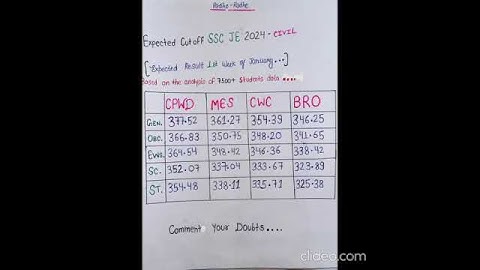 Radhe-Radhe
Expected Cutoff SSC JE 2024-CIVIL
[*Expected Result 1st Week of January...]
Based on the analysis of 7500+ Students data ....
CPWD MES CWC BRO
GEN. 377.52 361.27 354.39 346.25
OBC. 366.83 350.75 348.20 341.65
EWS. 364.54 348.42 346.36 338.42
SC. 352.07 337.04 333.67 323.89
ST. 354.48 338.11 335.71 325.38
Comment Your Doubts....
clideo.com